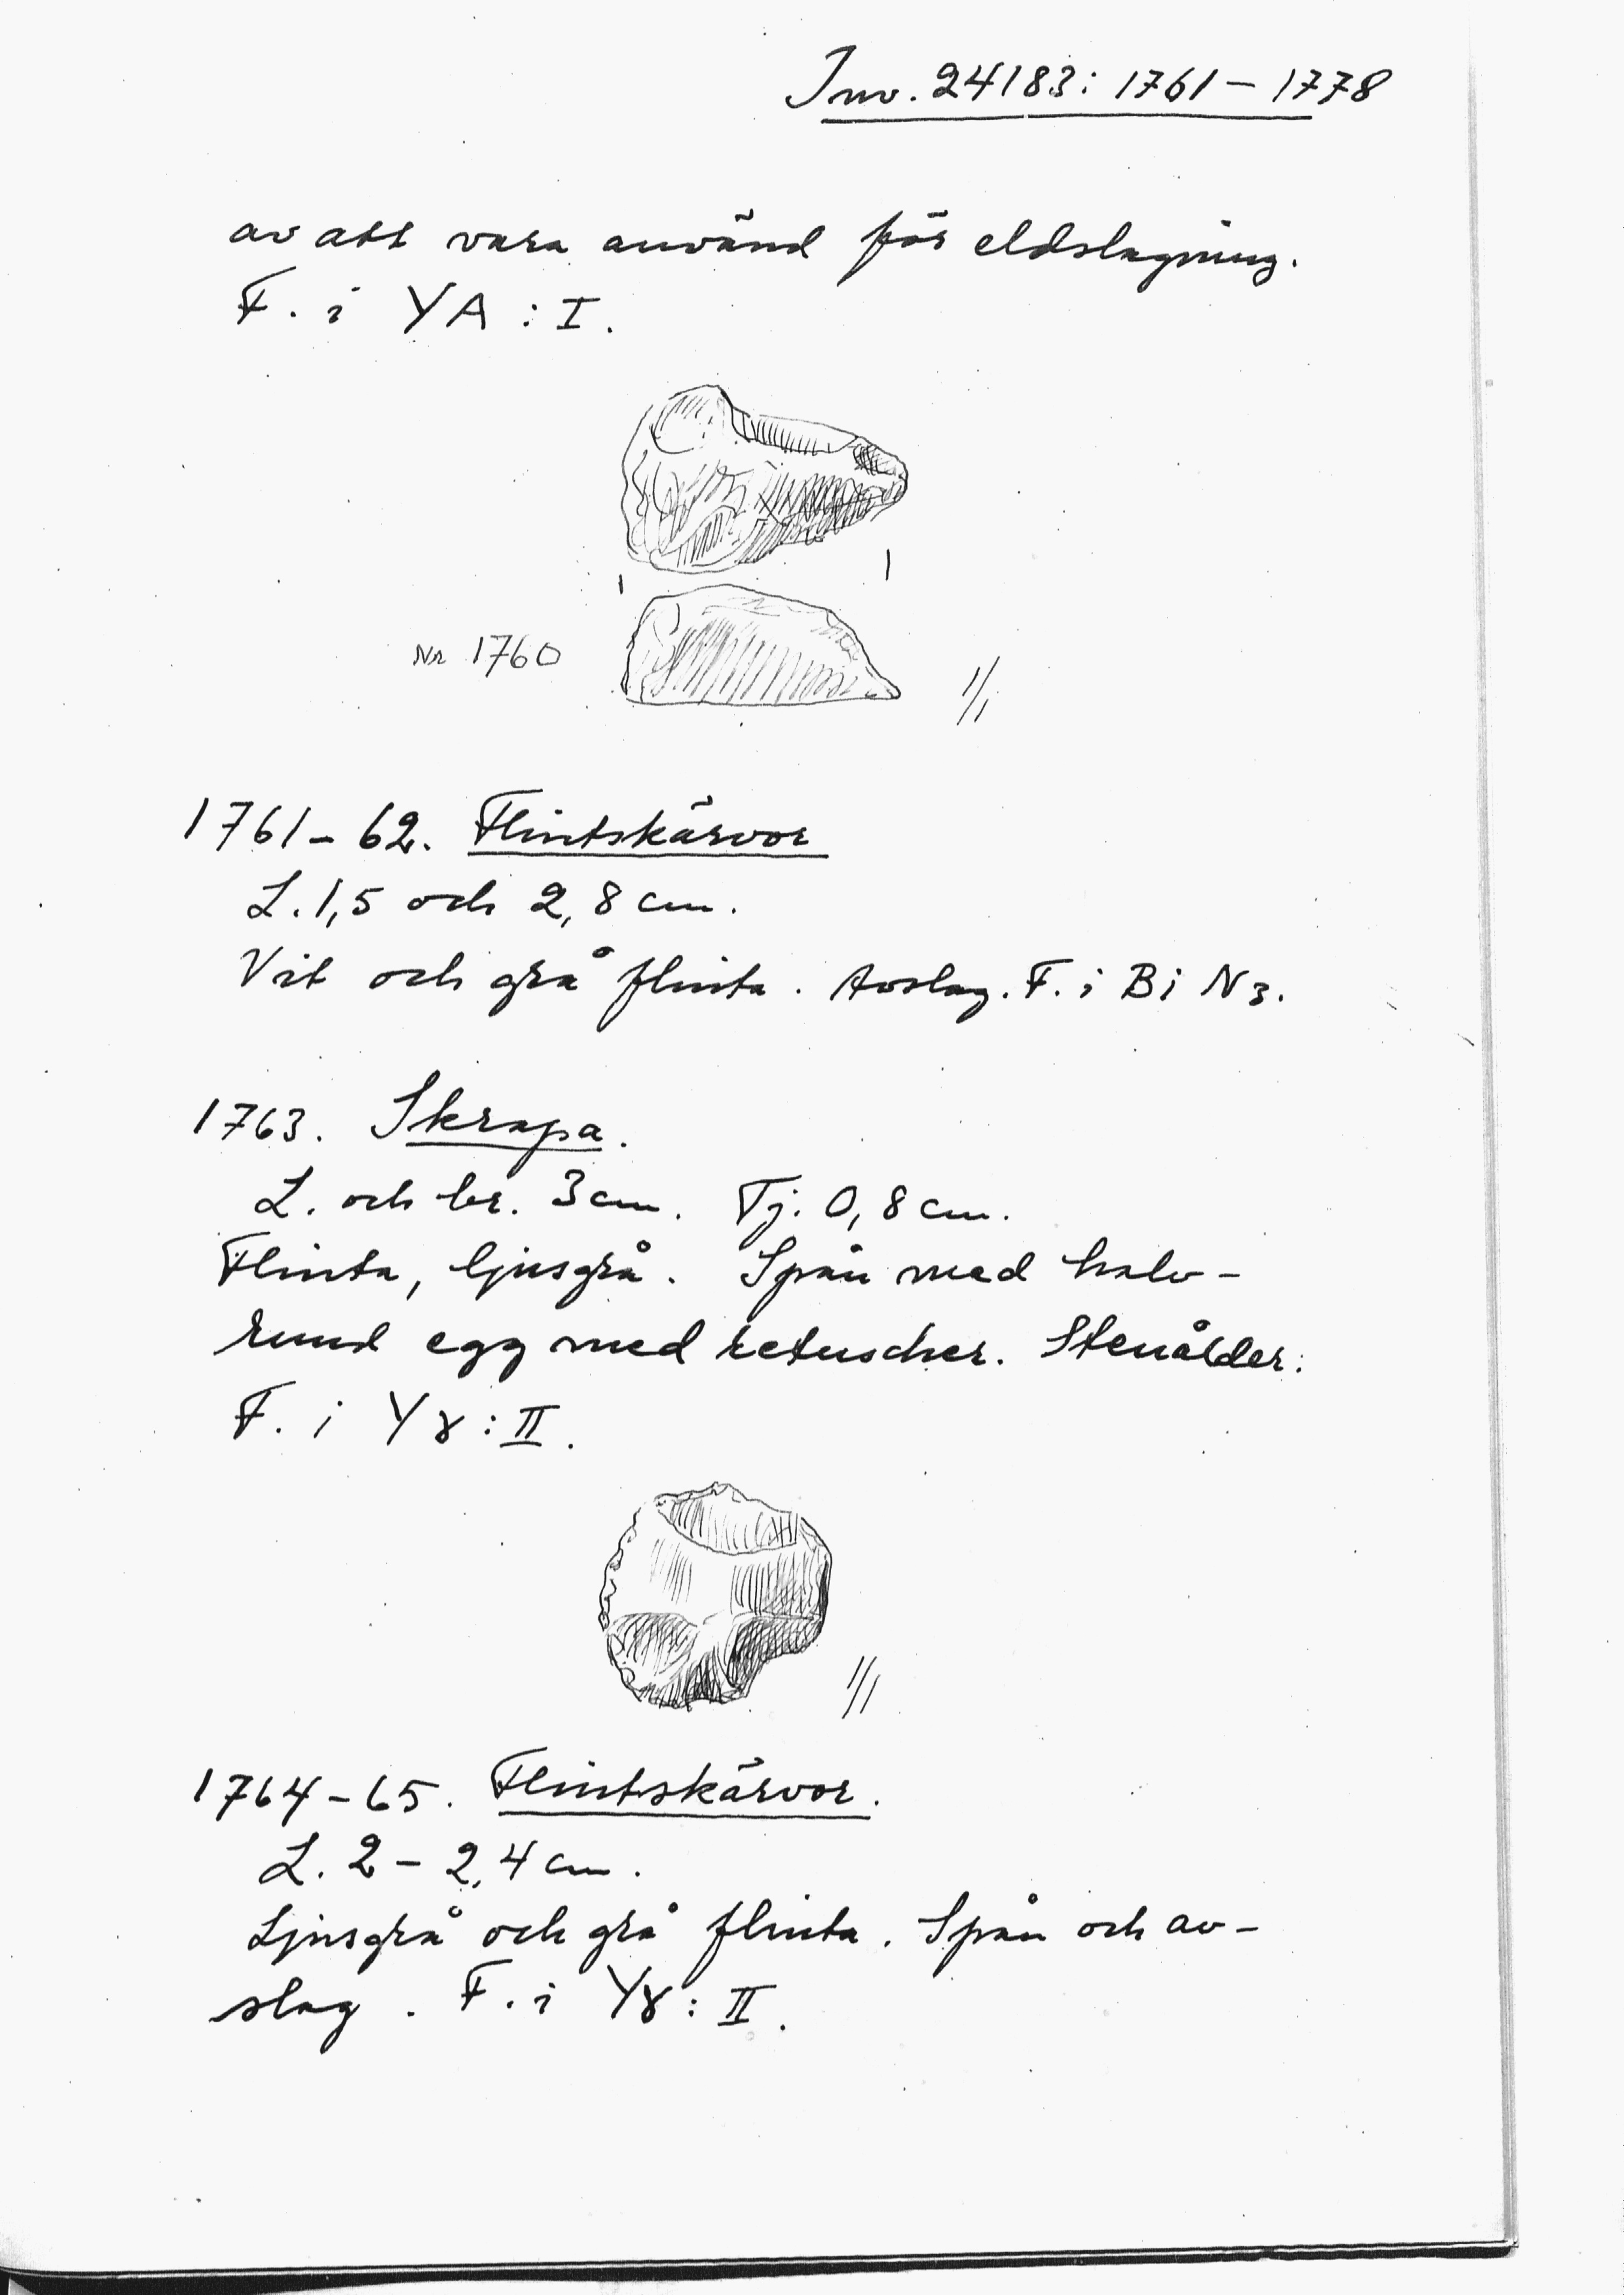 Inv. 24183: 1761 – 1778
av att vara använd för eldslagning.
F. i YA : I.
Nr 1760
1/1
1761 – 62. Flintskärvor
L. 1,5 och 2,8 cm.
Vit och grå flinta. Avslag. F. i Bi N3.
1763. Skrapa.
L. och br. 3 cm. Tj. 0,8 cm.
Flinta, ljusgrå. Spån med halv-
rund egg med retuscher. Stenålder.
F. i Yɣ : II.
1/1
1764 – 65. Flintskärvor.
L. 2 – 2,4 cm.
Ljusgrå och grå flinta. Spån och av-
slag. F. i Yɣ : II.